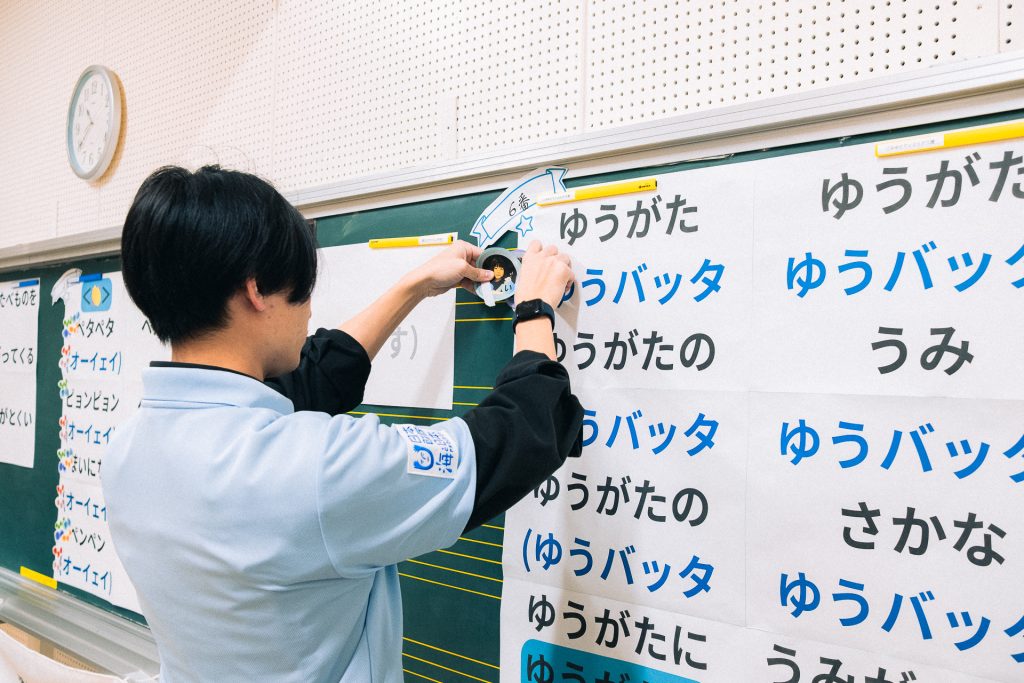 べものを
ってくる
がとくい
ペタペタ
(オーイェイ)
ピョンピョン
(オーイェイ
まいにち
(オーイェ
ペンペン
(オーイェイ)
す)
6番
ゆうがた
ゆうバッタ
ゆうがたの
ゆうバッタ
ゆうがたの
(ゆうバッタ
ゆうがたに
ゆうがた
ゆうバッタ
うみ
ゆうバッタ
さかな
ゆうバッ
うみが